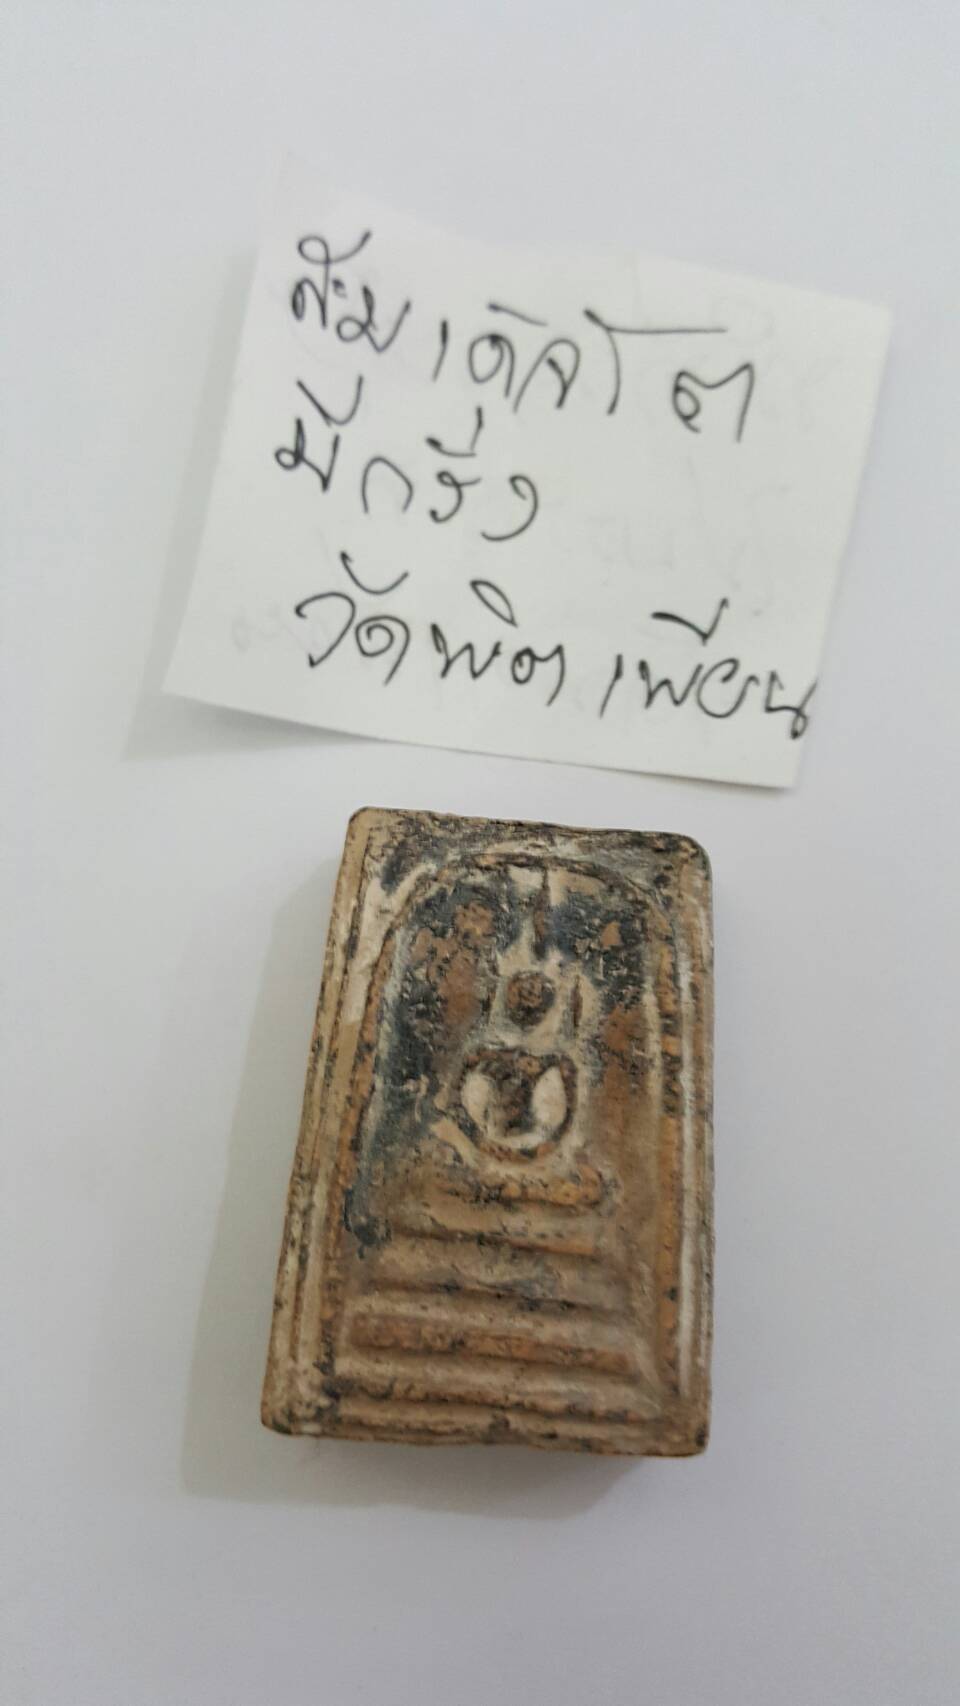 สมเด็จโต
ปักริ่ง
วัดพิตเพียน